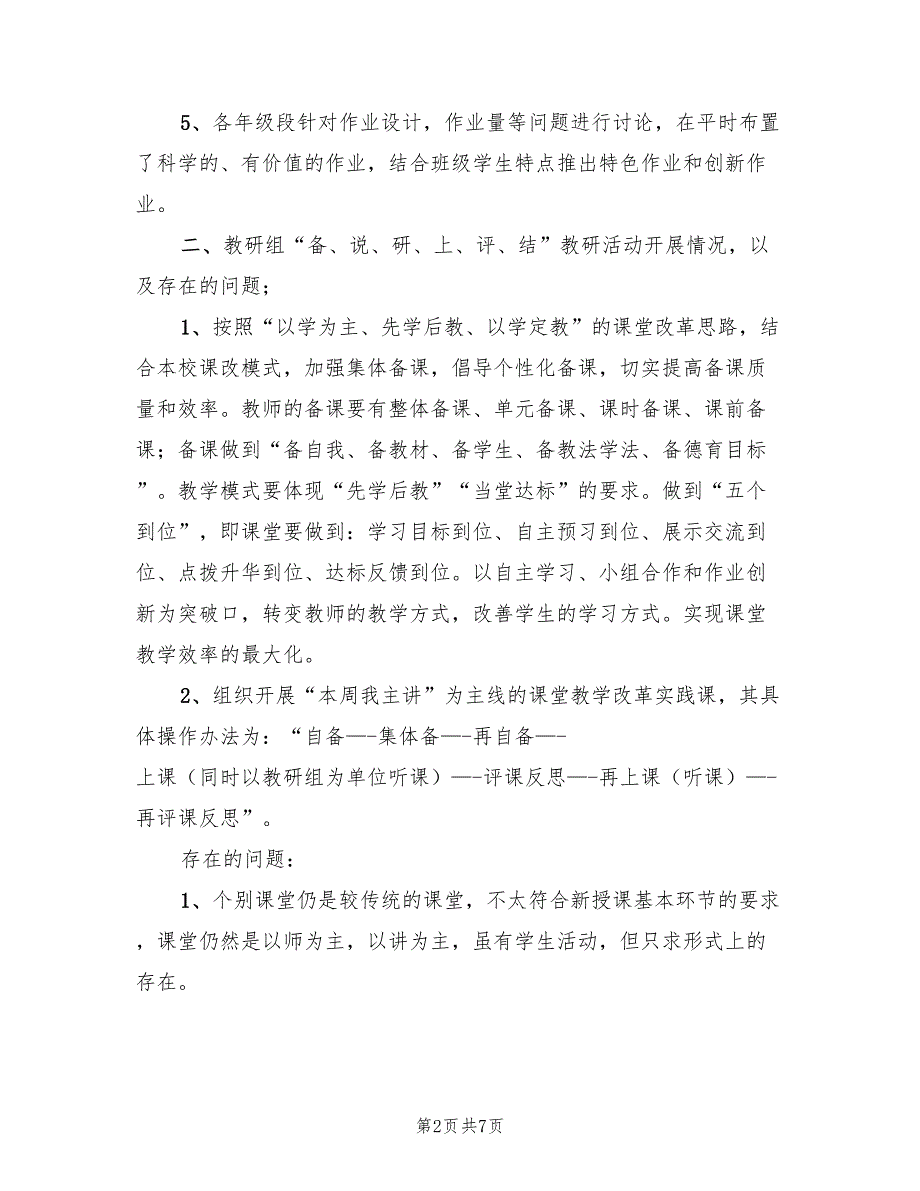 5、各年级段针对作业设计，作业量等问题进行讨论，在平时布置
了科学的、有价值的作业，结合班级学生特点推出特色作业和创新作
业。
二、教研组“备、说、研、上、评、结”教研活动开展情况，以
及存在的问题；
1、按照“以学为主、先学后教、以学定教”的课堂改革思路，结
合本校课改模式，加强集体备课，倡导个性化备课，切实提高备课质
量和效率。教师的备课要有整体备课、单元备课、课时备课、课前备
课；备课做到“备自我、备教材、备学生、备教法学法、备德育目标
”。教学模式要体现“先学后教”“当堂达标”的要求。做到“五个
到位”，即课堂要做到：学习目标到位、自主预习到位、展示交流到
位、点拨升华到位、达标反馈到位。以自主学习、小组合作和作业创
新为突破口，转变教师的教学方式，改善学生的学习方式。实现课堂
教学效率的最大化。
2、组织开展“本周我主讲”为主线的课堂教学改革实践课，其具
体操作办法为：“自备—-集体备—-再自备—-
上课（同时以教研组为单位听课）—-评课反思—-再上课（听课）—-
再评课反思”。
存在的问题：
1、个别课堂仍是较传统的课堂，不太符合新授课基本环节的要求
，课堂仍然是以师为主，以讲为主，虽有学生活动，但只求形式上的
存在。
第2页 共7页